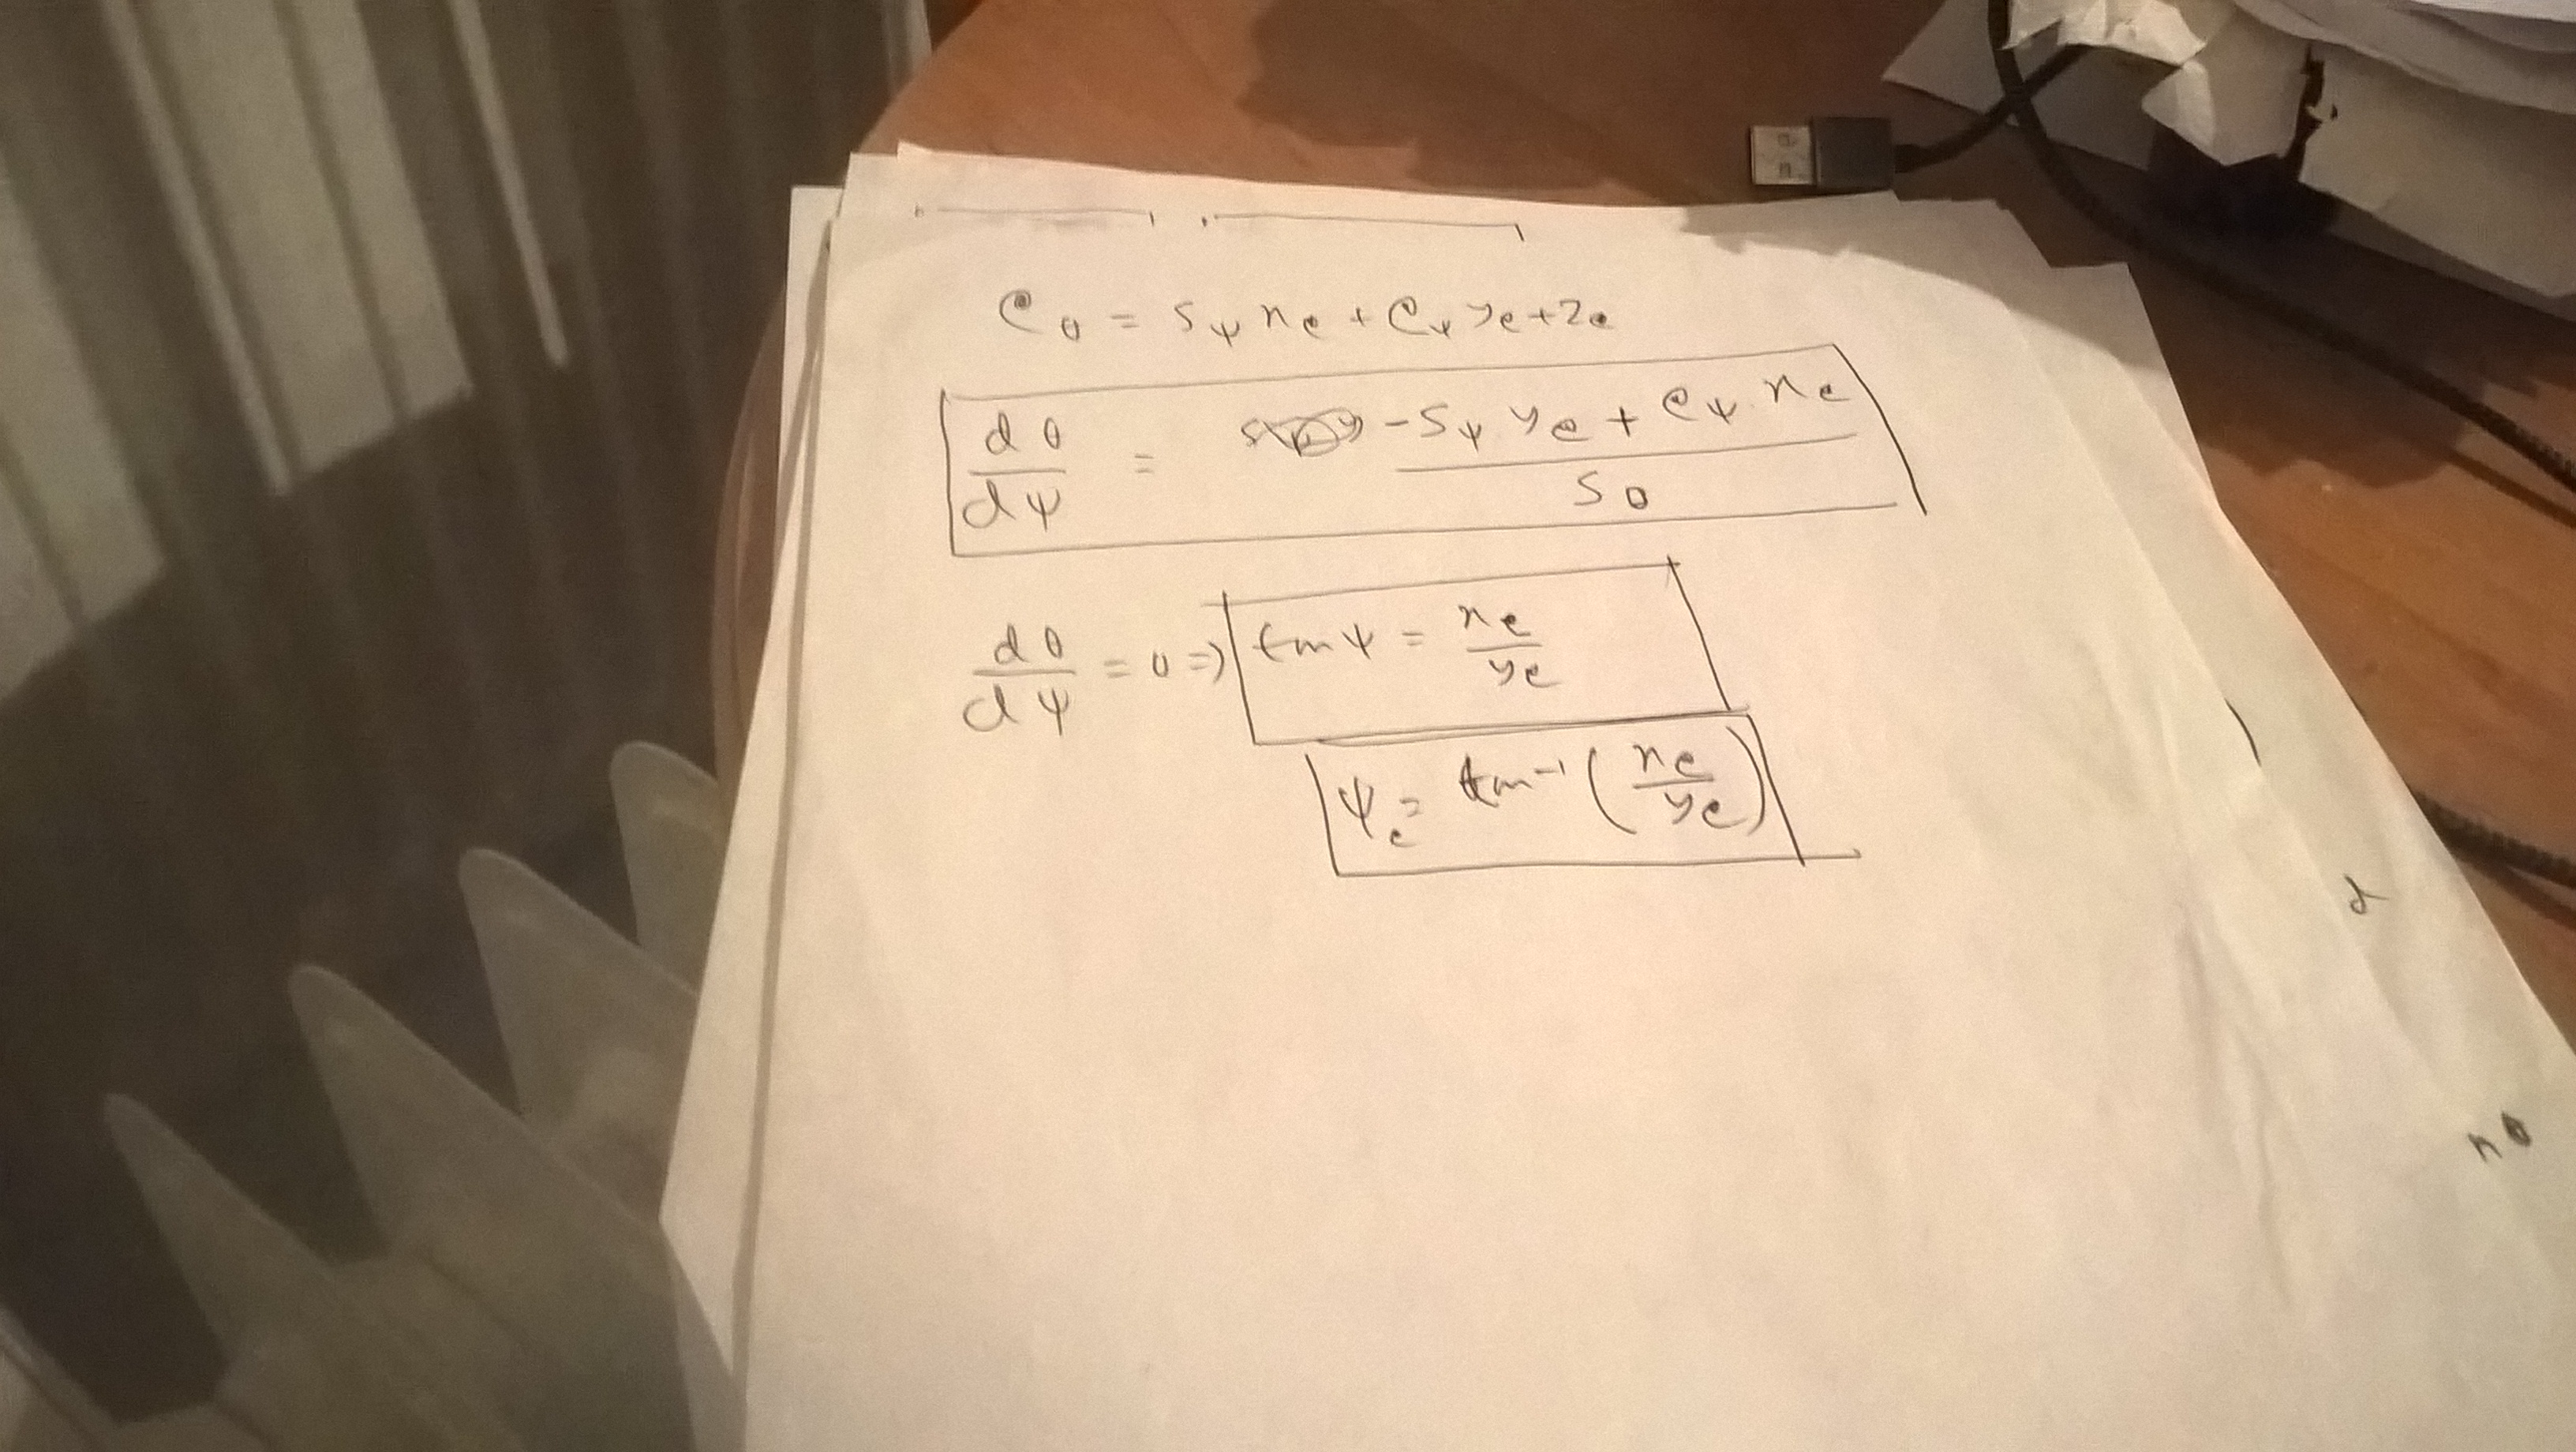 C_θ = S_ψ x_e + C_ψ y_e + z_e
dθ/dψ = (-S_ψ y_e + C_ψ x_e)/S_θ
dθ/dψ = 0 ⇒ tan ψ = x_e/y_e
ψ_e = tan⁻¹ (x_e/y_e)